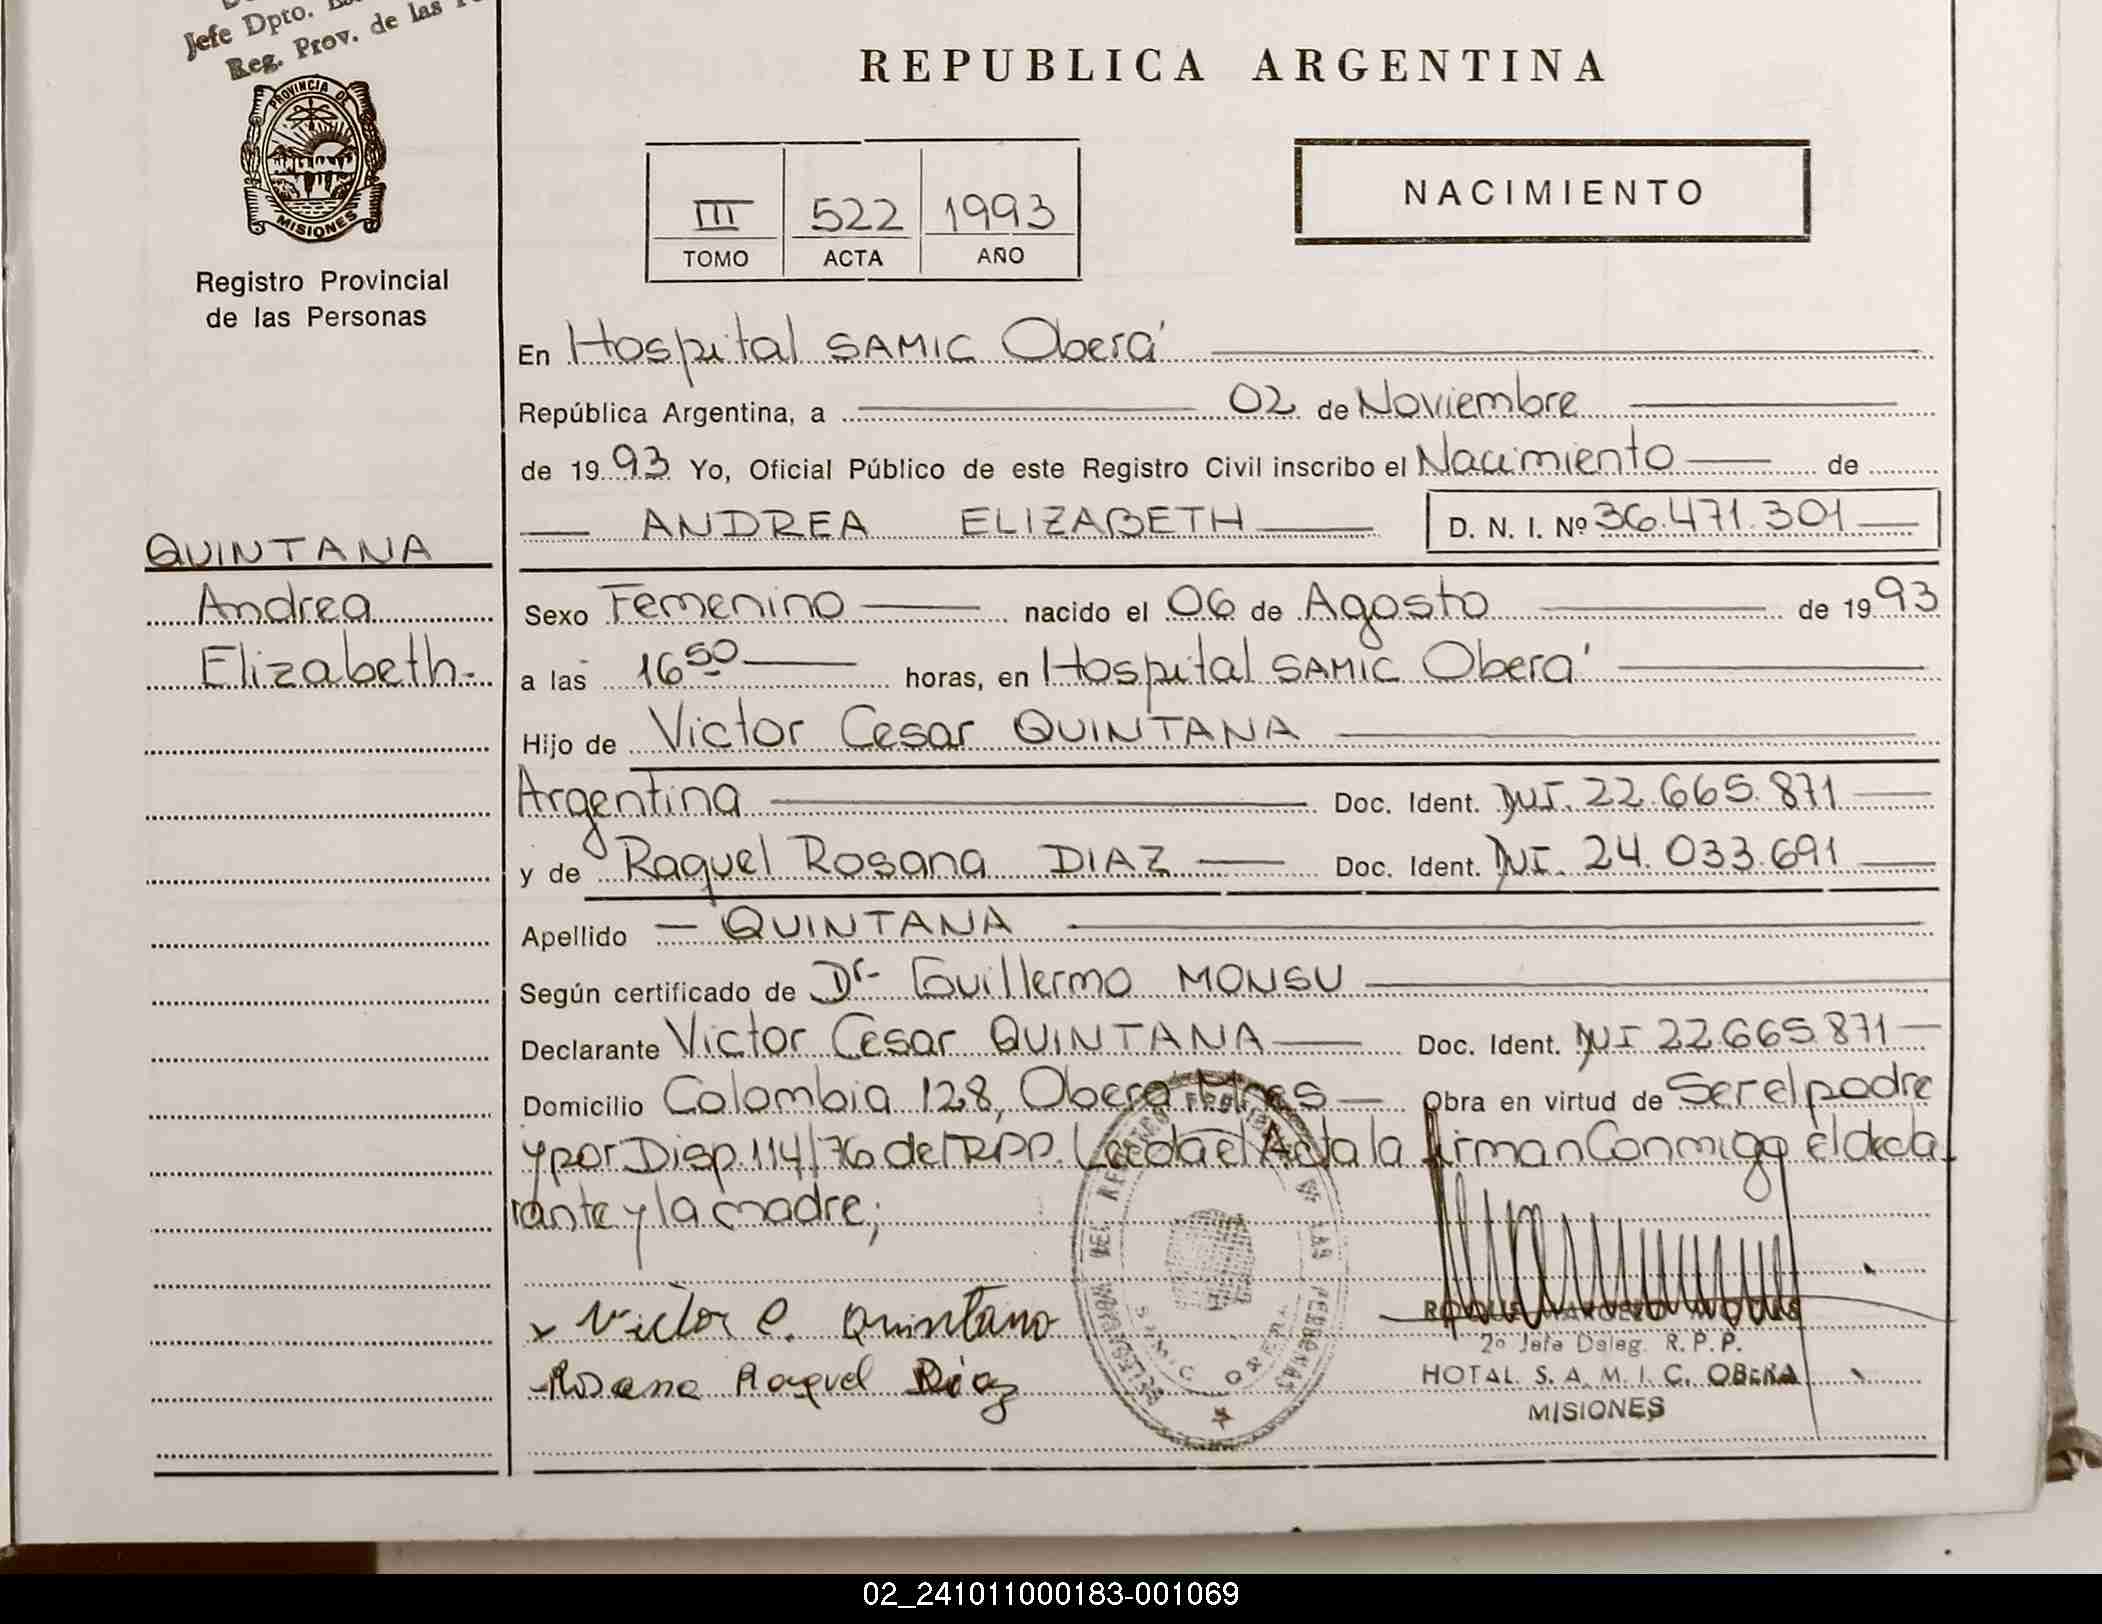 Jefe Dpto.
Reg. Prov. de las
PROVINCIA DE
MISIONES
Registro Provincial
de las Personas
REPUBLICA ARGENTINA
III 522 1993
TOMO ACTA AÑO
NACIMIENTO
En Hospital SAMIC Oberá
República Argentina, a 02 de Noviembre
de 1993 Yo, Oficial Público de este Registro Civil inscribo el Nacimiento de
ANDREA ELIZABETH D. N. I. Nº 36.471.301
QUINTANA
Andrea
Elizabeth.-
Sexo Femenino nacido el 06 de Agosto de 1993
a las 16 50 horas, en Hospital SAMIC Oberá
Hijo de Victor Cesar QUINTANA
Argentina Doc. Ident. DNI. 22.665.871
y de Raquel Rosana DIAZ Doc. Ident. DNI. 24.033.691
Apellido QUINTANA
Según certificado de Dr. Guillermo MONSU
Declarante Victor Cesar QUINTANA Doc. Ident. DNI 22.665.871
Domicilio Colombia 128, Obera Mnes Obra en virtud de Ser el padre
y por Disp. 114/76 del RPP. Leida el Acta la firman Conmigo el decla
rante y la madre;
x Victor C. Quintana
Rosana Raquel Diaz
S.A.M.I.C. OBERA
2º Jefe Deleg. R. P. P.
HOTAL. S. A. M. I. C. OBERA
MISIONES
02_241011000183-001069